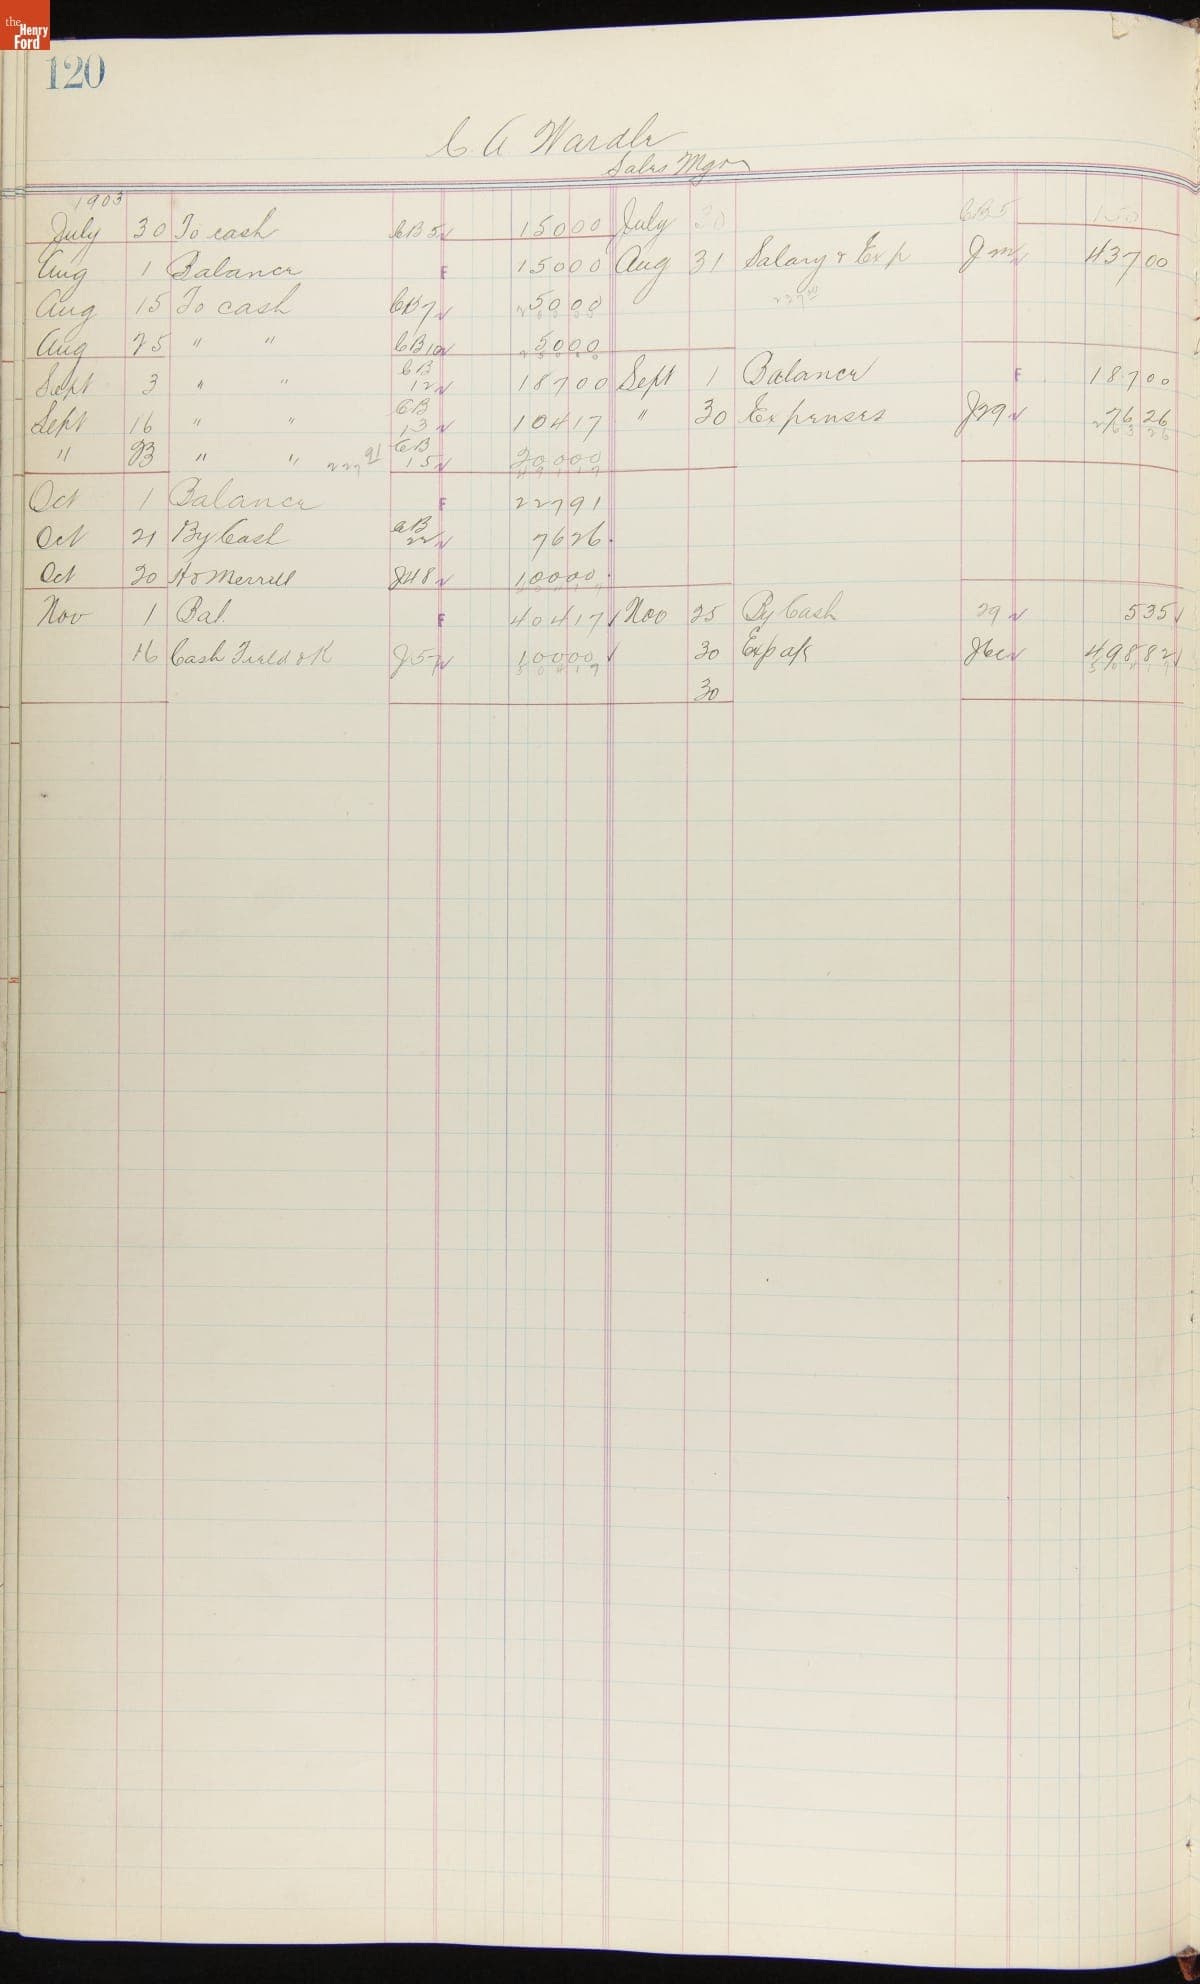 the Henry Ford
120
C A Wardle
Sales Mgr
1903
July 30 To cash CB5 150 00 July 30 CB5 150
Aug 1 Balance F 150 00 Aug 31 Salary & Exp J 437 00
Aug 15 To cash CB7 50 00
Aug 25 " " CB10 50 00
Sept 3 " " CB 12 187 00 Sept 1 Balance F 187 00
Sept 16 " " CB 13 104 17 " 30 Expenses J29 76 26
" 23 " " 227 91 CB 15 200 00
Oct 1 Balance F 227 91
Oct 21 By Cash CB 22 76 26
Oct 20 Merrill J48 100 00
Nov 1 Bal. F 404 17 Nov 25 By Cash 29 5 35
16 Cash J57 100 00 30 Exp a/c 498 82
504 17 504 17
30